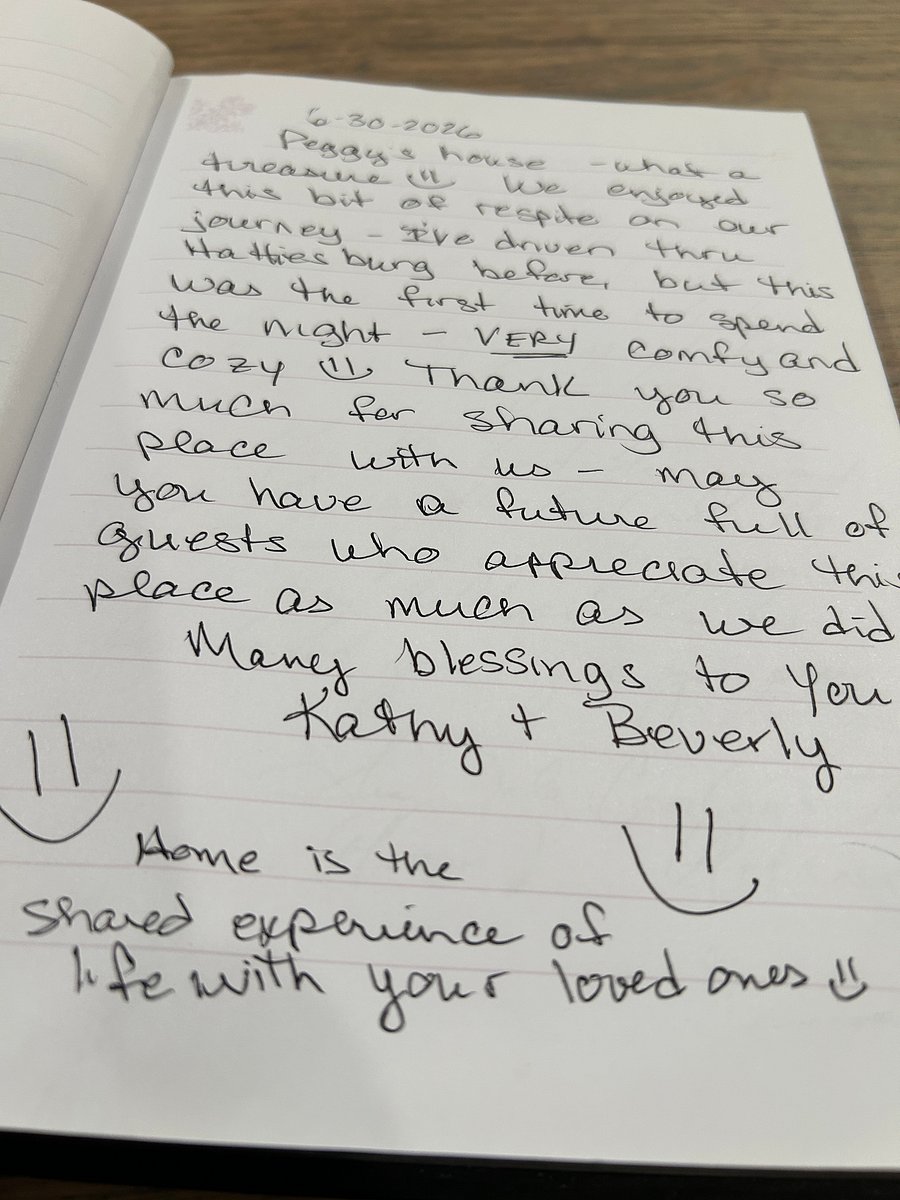 6-30-2026
Peggy's house - what a
treasure
We enjoyed
this bit of respite on our
journey - I've driven thru
Hattiesburg before, but this
was the first time to spend
the night - VERY comfy and
cozy Thank you so
much for sharing this
place with us - may
you have a future full of
guests who appreciate this
place as much as we did
Many blessings to you
Kathy + Beverly
Home is the
shared experience of
life with your loved ones